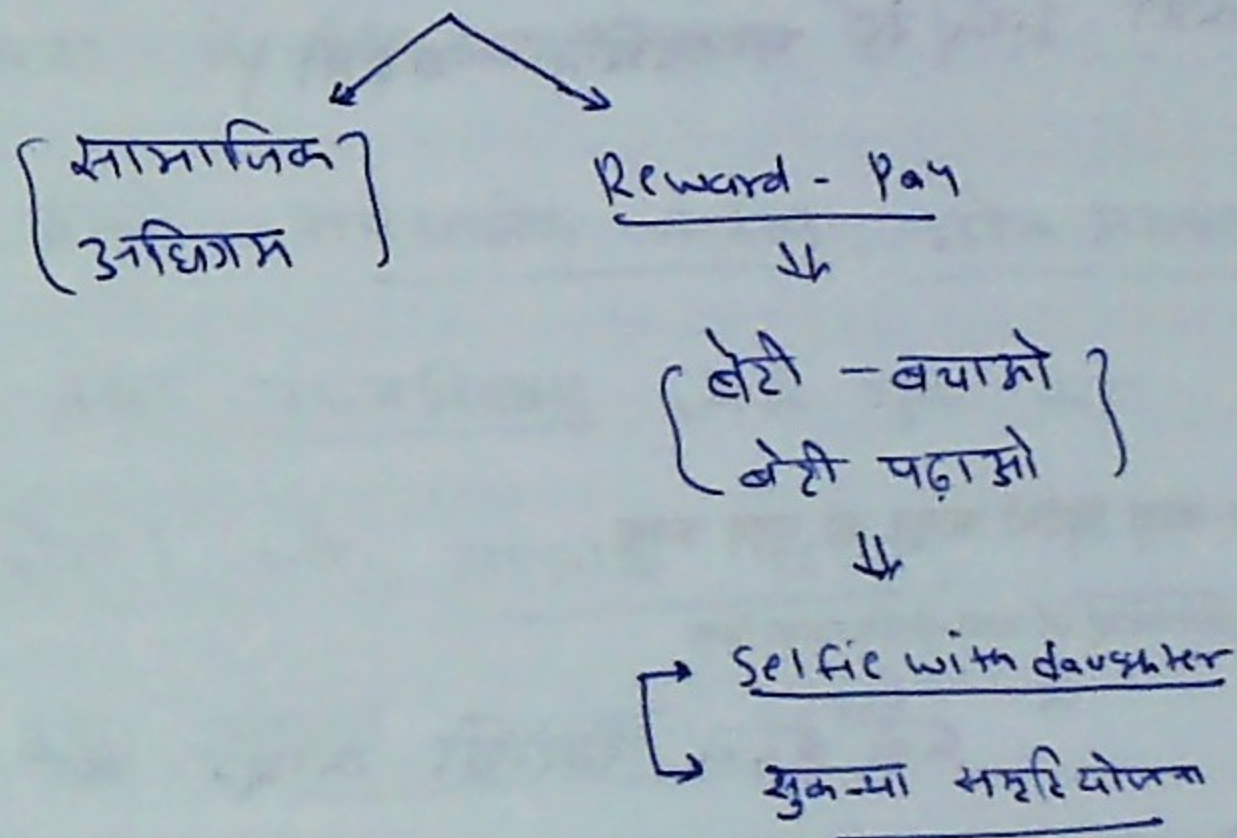 सामाजिक
अधिगम
Reward - Pay
बेटी - बचाओ
बेटी पढ़ाओ
Selfie with daughter
सुकन्या समृद्धि योजना